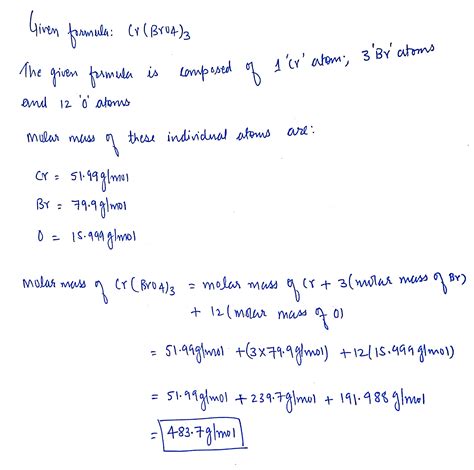 Given formula: Cr(BrO4)3
The given formula is composed of 1 'Cr' atom; 3 'Br' atoms
and 12 'O' atoms
Molar mass of these individual atoms are:
Cr = 51.99g/mol
Br = 79.9g/mol
O = 15.999g/mol
Molar mass of Cr(BrO4)3 = molar mass of Cr + 3(molar mass of Br)
+ 12(molar mass of O)
= 51.99g/mol + (3x79.9g/mol) + 12(15.999g/mol)
= 51.99g/mol + 239.7g/mol + 191.988g/mol
= 483.7g/mol